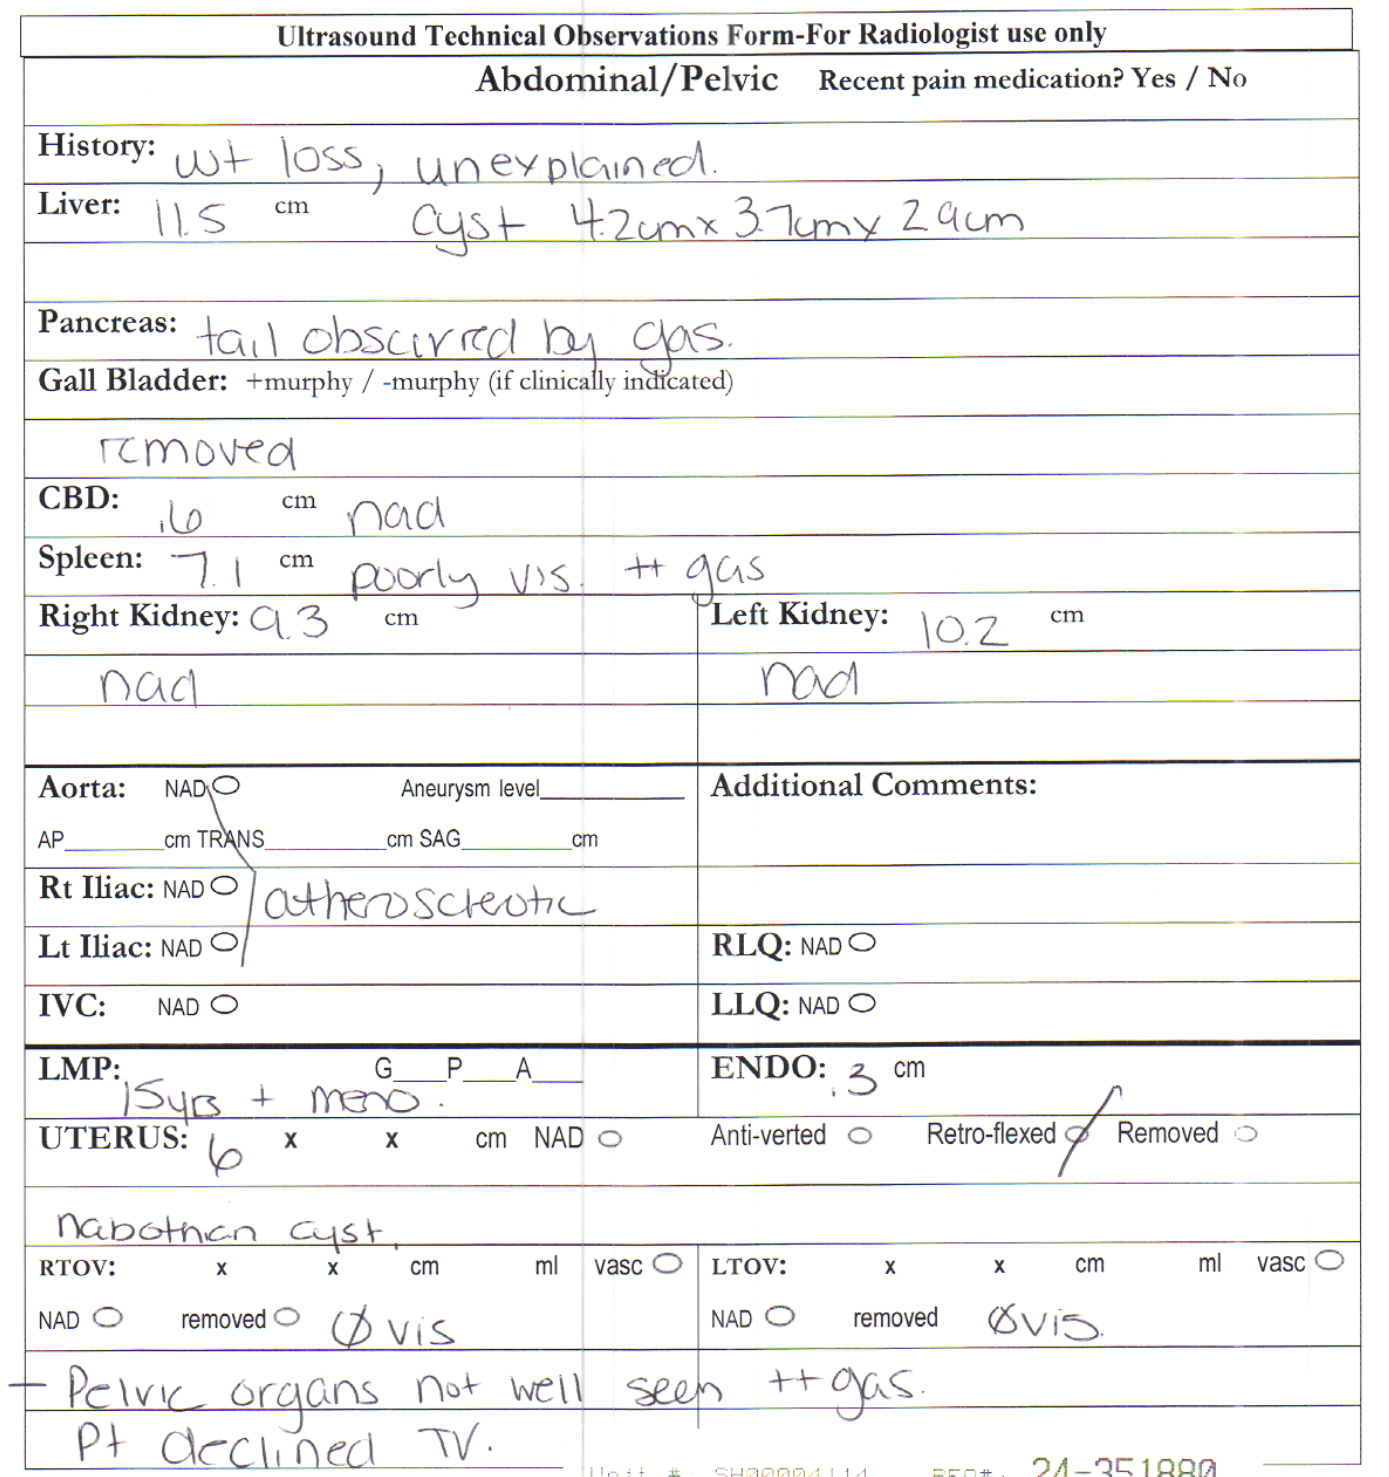 Ultrasound Technical Observations Form-For Radiologist use only
Abdominal/Pelvic Recent pain medication? Yes / No
History: wt loss, unexplained.
Liver: 11.5 cm cyst 4.2cm x 3.7cm x 2.9cm
Pancreas: tail obscurred by gas.
Gall Bladder: +murphy / -murphy (if clinically indicated)
removed
CBD: .6 cm nad
Spleen: 7.1 cm poorly vis. ++ gas
Right Kidney: 9.3 cm Left Kidney: 10.2 cm
nad nad
Aorta: NAD Aneurysm level______ Additional Comments:
AP______cm TRANS______cm SAG______cm
Rt Iliac: NAD atherosclerotic
Lt Iliac: NAD RLQ: NAD
IVC: NAD LLQ: NAD
LMP: 15yrs + meno. G___P___A___ ENDO: .3 cm
UTERUS: 6 x x cm NAD Anti-verted Retro-flexed Removed
nabothian cyst.
RTOV: x x cm ml vasc LTOV: x x cm ml vasc
NAD removed Ø vis NAD removed Ø vis.
- Pelvic organs not well seen ++ gas.
Pt declined TV.
24-351880